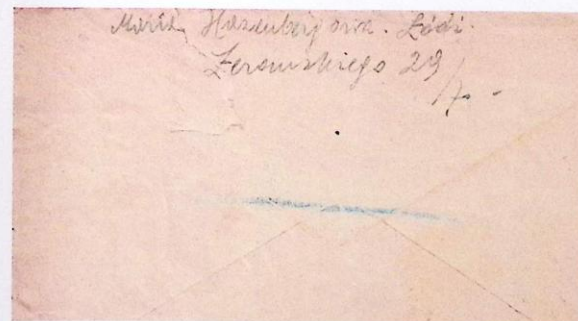 Maria Hasenbergowa. Łódź.
Żeromskiego 29
/7.-